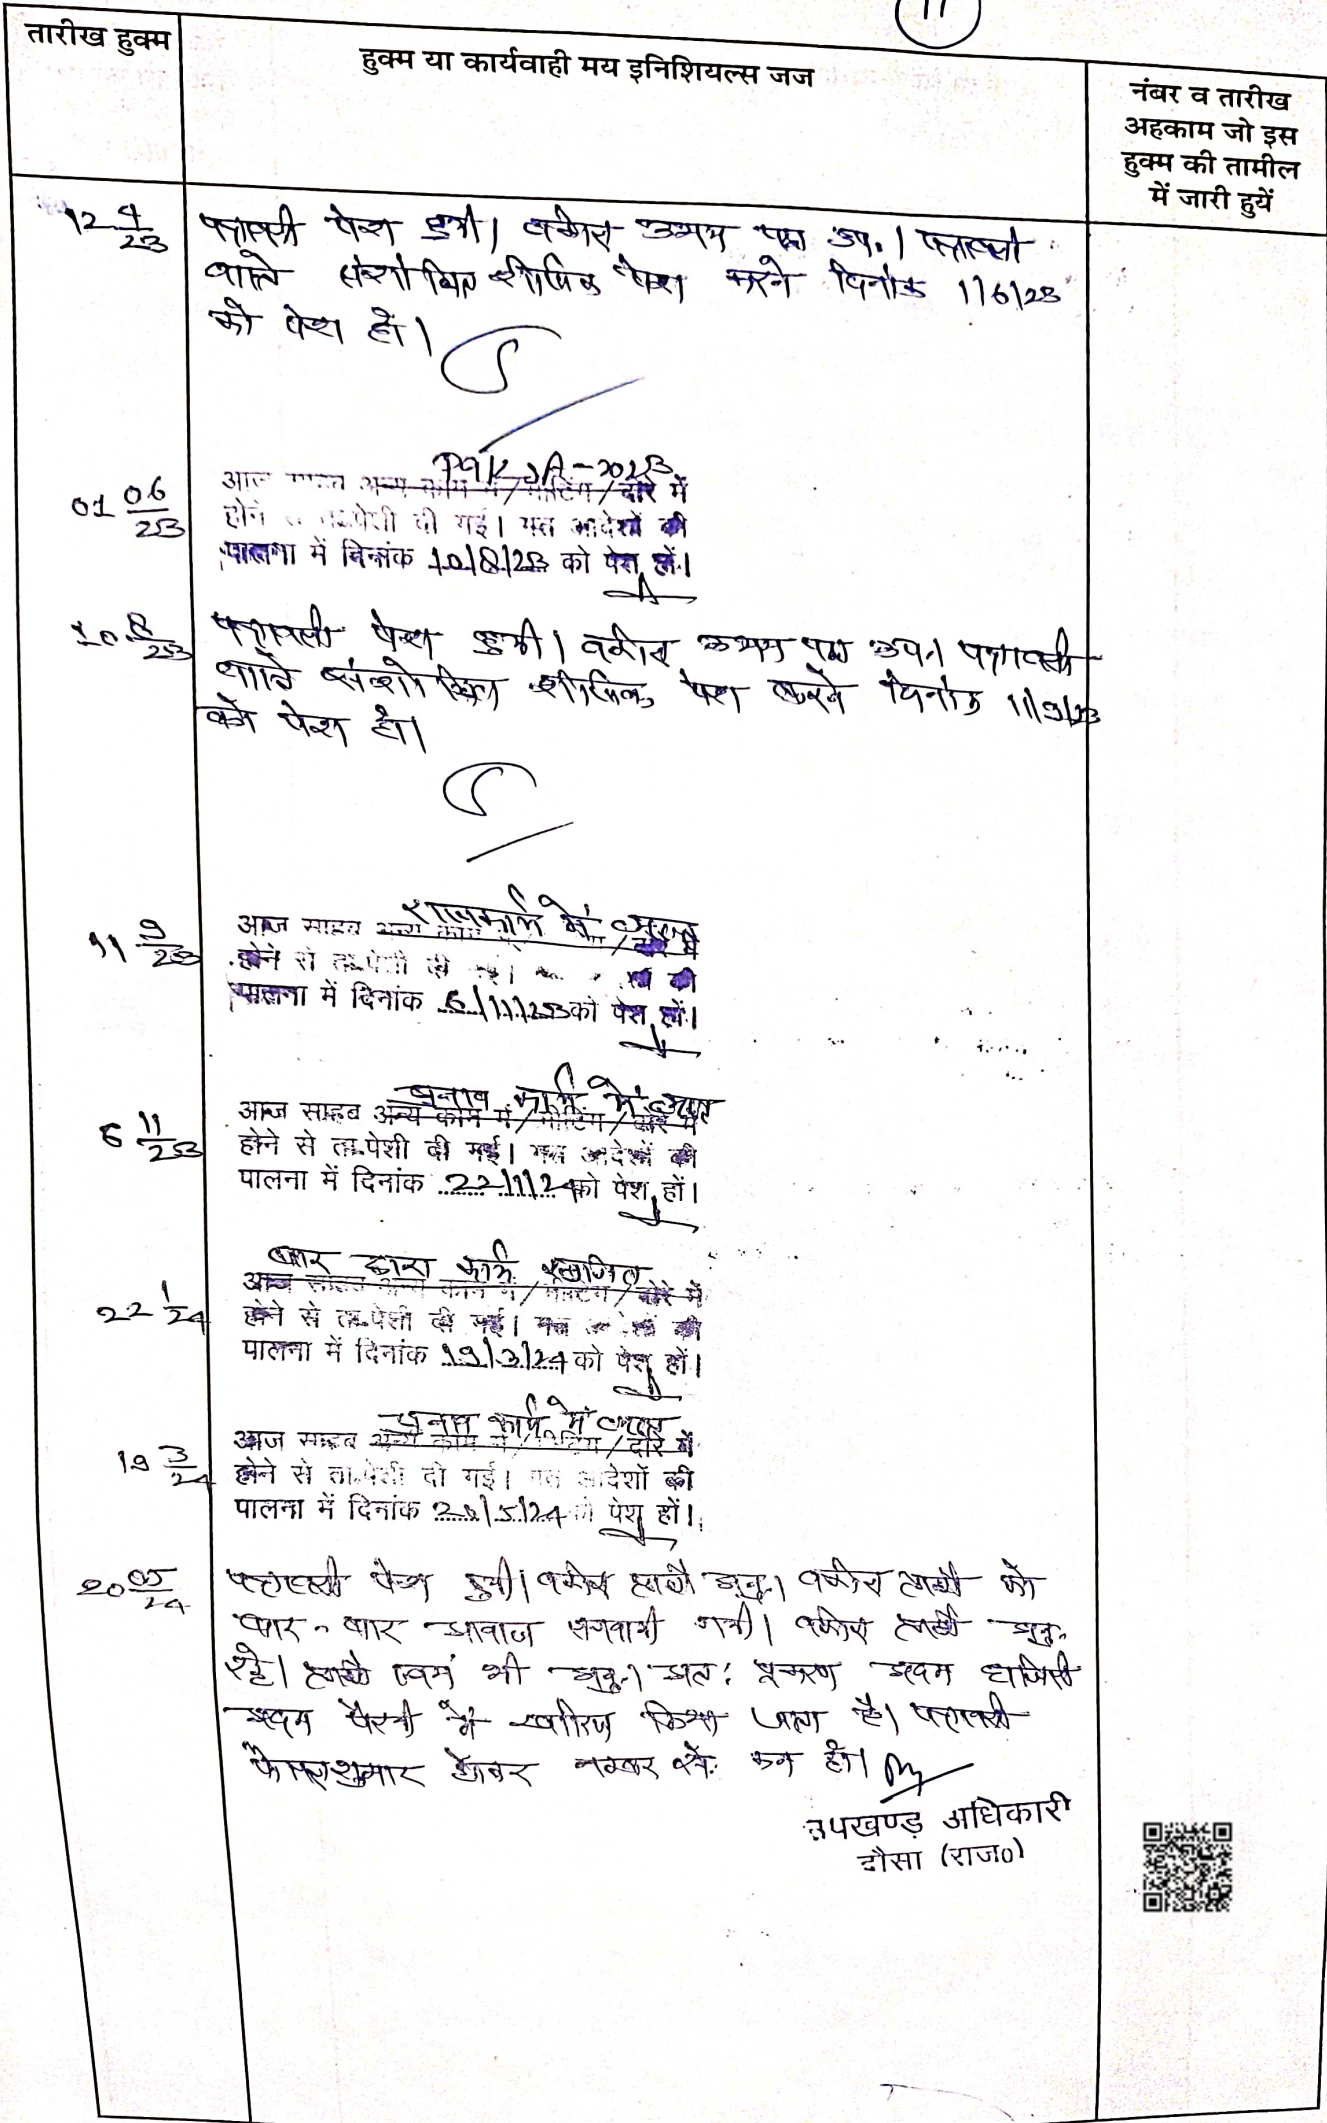 11
तारीख हुक्म
हुक्म या कार्यवाही मय इनिशियल्स जज
नंबर व तारीख
अहकाम जो इस
हुक्म की तामील
में जारी हुयें
12 4/23
पत्रावली पेश हुयी। वकील उभय पक्ष उप.। पत्रावली
वास्ते संशोधित शीर्षक पेश करने दिनांक 1/6/23
को पेश हो।
01 06/23
आज अन्य काम में/मीटिंग/दौरे में
होने पेशी दी गई। गत आदेशों की
पालना में दिनांक 10/8/23 को पेश हों।
10 8/23
पत्रावली पेश हुयी। वकील उभय पक्ष उप.। पत्रावली
वास्ते संशोधित शीर्षक पेश करने दिनांक 11/9/23
को पेश हो।
राजकार्य में व्यस्त
11 9/23
आज साहब अन्य काम / दौरे में
होने से ता.पेशी दी की
पालना में दिनांक 6/11/23 को पेश हों।
चुनाव कार्य में व्यस्त
6 11/23
आज साहब अन्य काम में/मीटिंग/दौरे में
होने से ता.पेशी दी गई। गत आदेशों की
पालना में दिनांक 22/1/24 को पेश हों।
बार द्वारा कार्य स्थगित
22 1/24
आज साहब अन्य काम में/मीटिंग/दौरे में
होने से ता.पेशी दी गई। गत की
पालना में दिनांक 19/3/24 को पेश हों।
चुनाव कार्य में व्यस्त
19 3/24
आज साहब अन्य काम में/मीटिंग/दौरे में
होने से ता.पेशी दी गई। गत आदेशों की
पालना में दिनांक 20/5/24 को पेश हों।
20 05/24
पत्रावली पेश हुयी। वकील प्रार्थी अनु.। वकील प्रार्थी को
बार-बार आवाज लगवायी गयी। वकील प्रार्थी अनु.
रहे। प्रार्थी स्वयं भी अनु.। अतः प्रकरण अदम हाजिरी
अदम पैरवी में खारिज किया जाता है। पत्रावली
फैसलशुमार होकर नम्बर से कम हो।
उपखण्ड अधिकारी
दौसा (राज0)